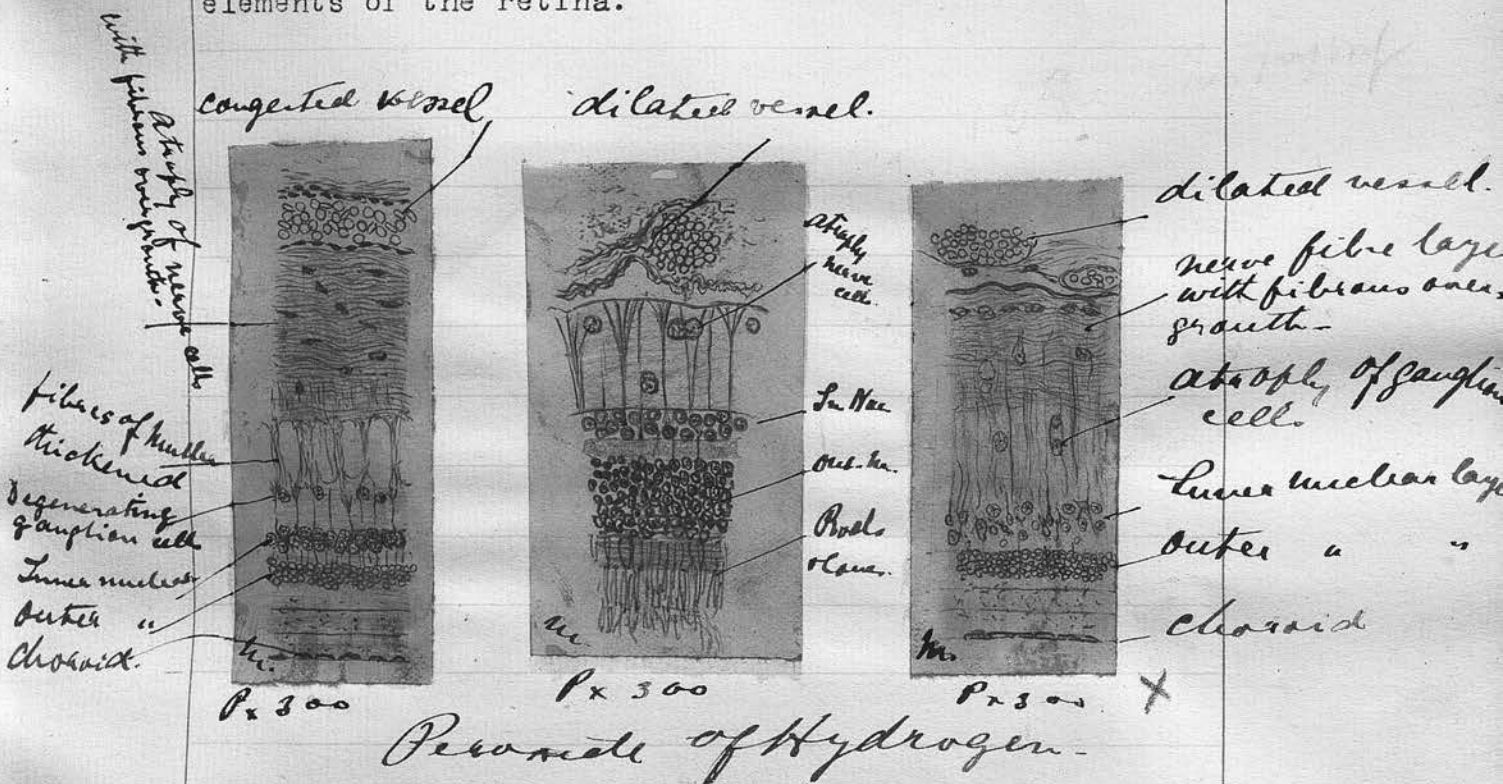 elements of the retina.
congested vessel
Atrophy of nerve cells
with fibrous overgrowth-
fibres of Muller
thickened
Degenerating
ganglion cells
Inner nuclear
outer "
choroid.
m.
Px 300
dilated vessel.
atrophy
nerve
cells.
In Nuc
out. Nu.
Rods
& Cones.
m
Px 300
dilated vessel.
nerve fibre laye
with fibrous over-
growth-
atrophy of ganglion
cells
Inner nuclear laye
outer " "
choroid
m.
Px 300 X
Peroxide of Hydrogen-